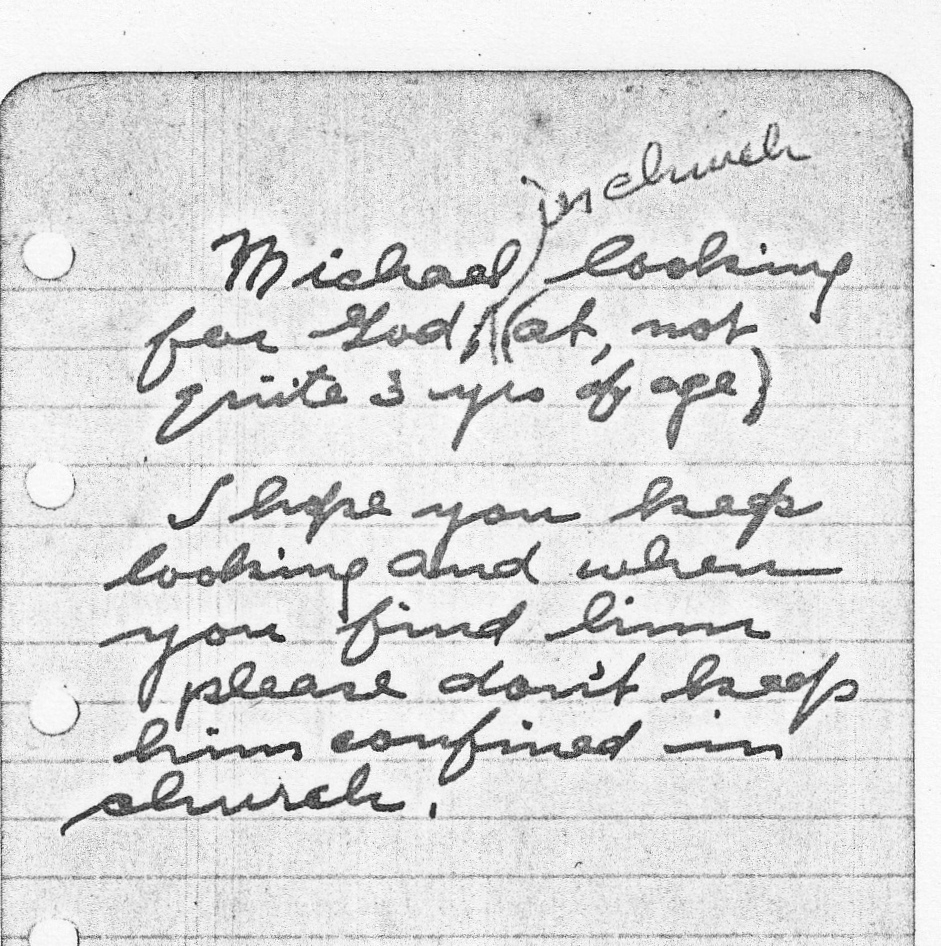 in church
Michael) looking
for God, (at, not
quite 3 yrs of age)
I hope you keep
looking and when
you find him
please don't keep
him confined in
church.